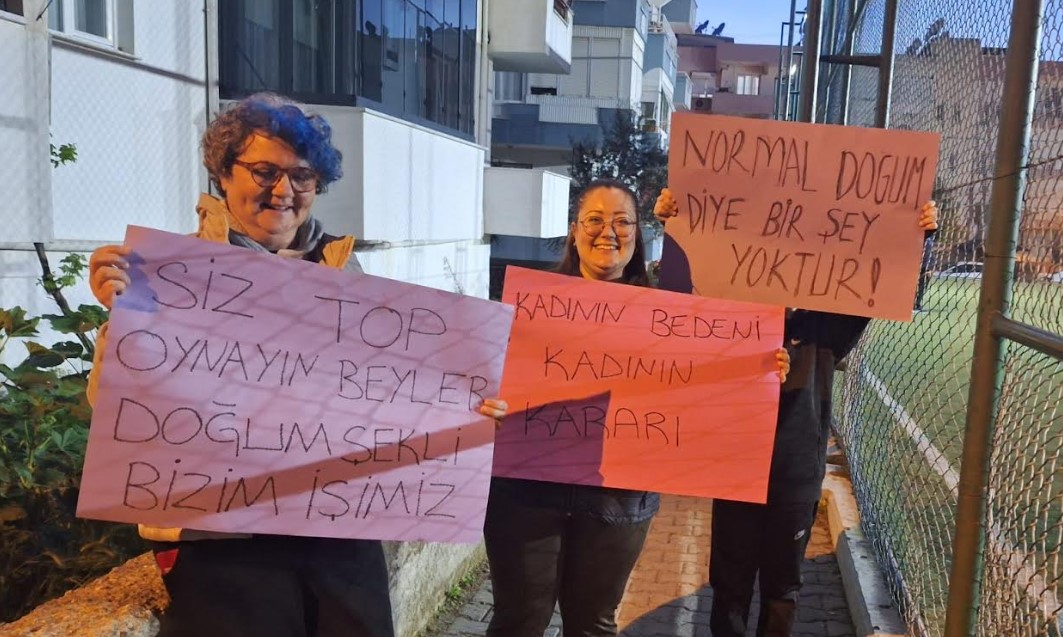 SİZ TOP
OYNAYIN BEYLER
DOĞUM ŞEKLİ
BİZİM İŞİMİZ
KADININ BEDENİ
KADININ
KARARI
NORMAL DOĞUM
DİYE BİR ŞEY
YOKTUR!